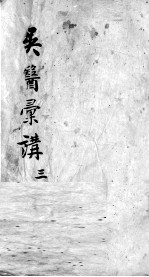 吳醫彙講
三